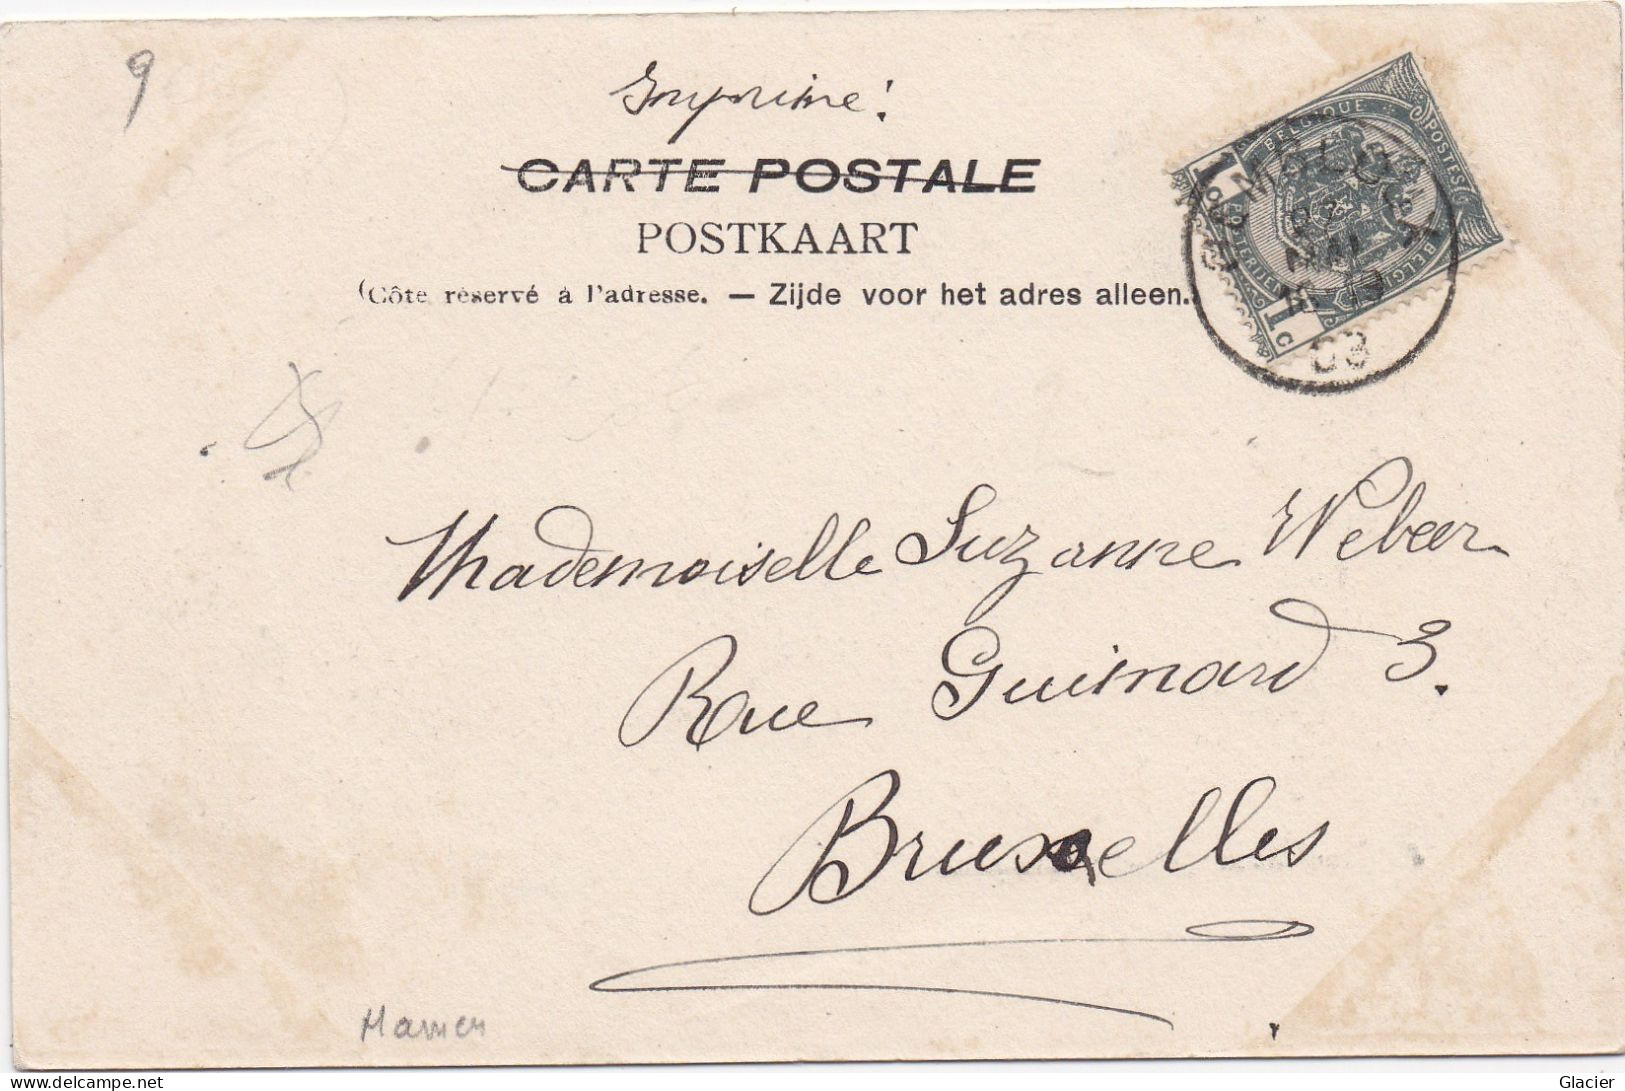 9
Imprimé.
CARTE POSTALE
POSTKAART
(Côte réservé à l'adresse. — Zijde voor het adres alleen.
BELGIQUE POSTES
1c
POSTERIJEN BELGIË
1c
GEMBLOUX
MAI
03
Mademoiselle Suzanne Weber
Rue Guimard 3.
Bruxelles
delcampe.net
Glacier